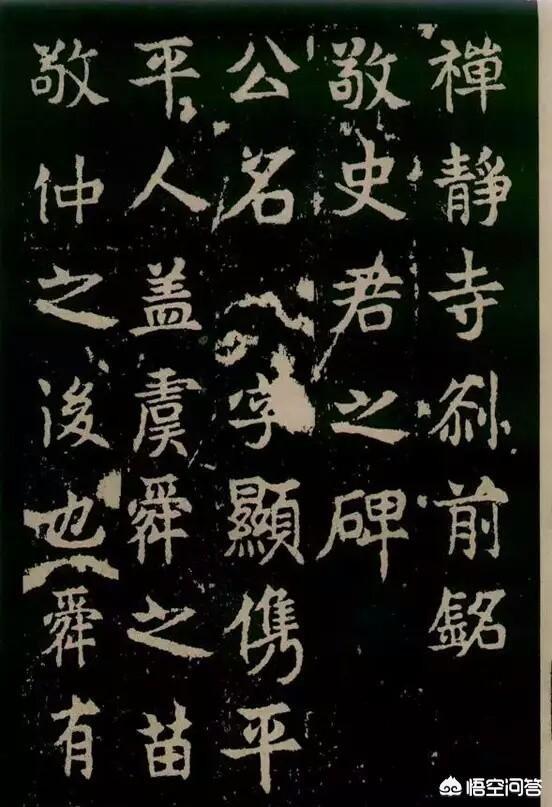 禪靜寺刹前銘
敬史君之碑
公名字顯儁平
平人盖虞舜之苗
敬仲之後也舜有
悟空问答